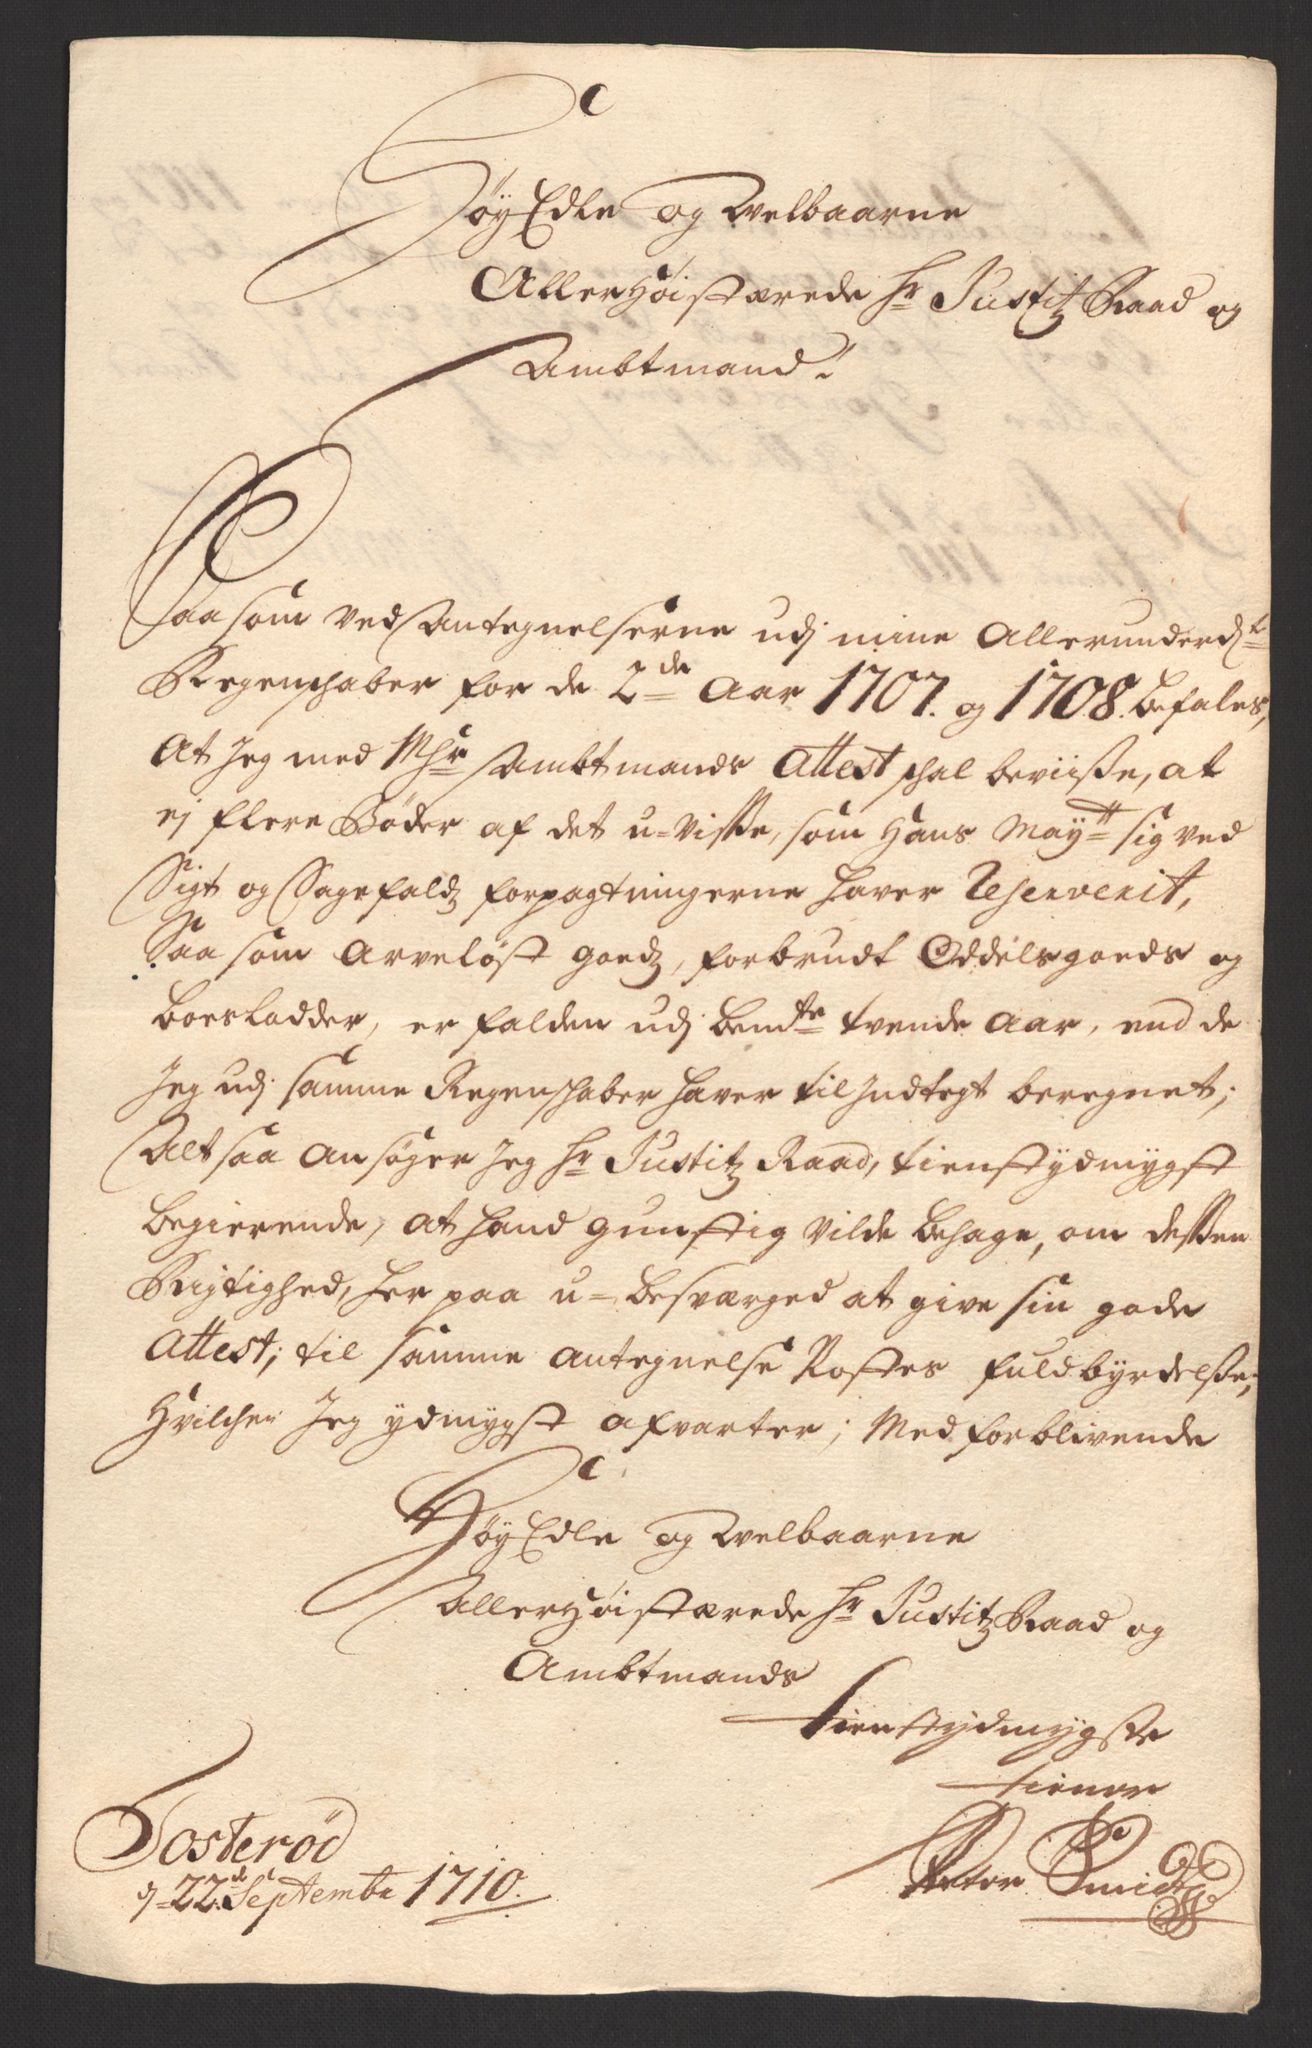 HøyEdle og Welbaarne
Allerhøistærede Hr Justitz Raad og
Ambtmand!
Saasom ved Antegnelserne udj mine Allerunderdste
Regenschaber for de 2de Aar 1707. og 1708. befales,
At Jeg med Mhr Ambtmands Attest schal beviisse, at
ej flere Bøder af det u-visse, som Hans Maytt sig ved
Sigt og Sagefaldz forpagtningerne haver Reserverit,
Saasom Arveløst goedz, forbrudt Oddelsgoeds og
boeslodder, er falden udj bemte tvende Aar, end de
Jeg udj samme Regenschaber haver til Indtegt beregnet;
Altsaa Ansøger Jeg Hr Justitz Raad, tienstydmygst
begierende, At hand gunstig vilde behage, om dessen
Rigtighed, her paa u-besværged at give sin gode
Attest; til samme Antegnelse Postes fuldbyrdelse;
Hvilchen Jeg ydmygst afvarter; Med forblivende
HøyEdle og Welbaarne
Allerhøistærede Hr Justitz Raad og
Ambtmands
tienstydmygste
tiener
Peter Smidt
Tosterød
d 22de Septembr 1710.